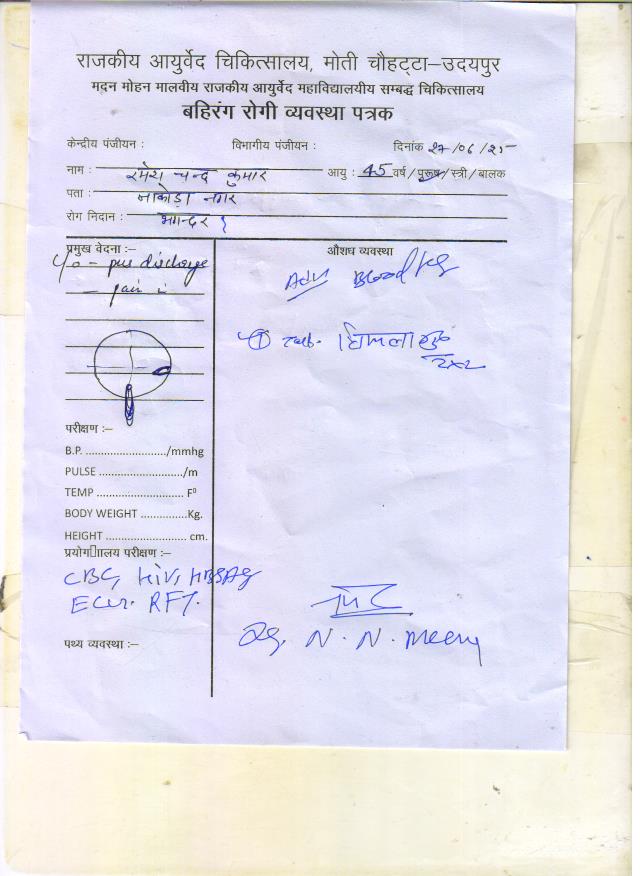 राजकीय आयुर्वेद चिकित्सालय, मोती चौहट्टा–उदयपुर
मदन मोहन मालवीय राजकीय आयुर्वेद महाविद्यालयीय सम्बद्ध चिकित्सालय
बहिरंग रोगी व्यवस्था पत्रक
केन्द्रीय पंजीयन : विभागीय पंजीयन : दिनांक 27/06/25
नाम : रमेश चन्द्र कुमार आयु : 45 वर्ष/पुरूष/स्त्री/बालक
पता : नाकोड़ा नगर
रोग निदान : भगन्दर
प्रमुख वेदना :–
C/o - pus discharge
- pain
औशध व्यवस्था
Adv Blood
① Tab. 
2x2
परीक्षण :–
B.P. ........................../mmhg
PULSE ...................../m
TEMP .......................... F⁰
BODY WEIGHT ..............Kg.
HEIGHT ........................ cm.
प्रयोग□ालय परीक्षण :–
CBC, HIV, HBSAg
RFT.
पथ्य व्यवस्था :–
N. N. Meena